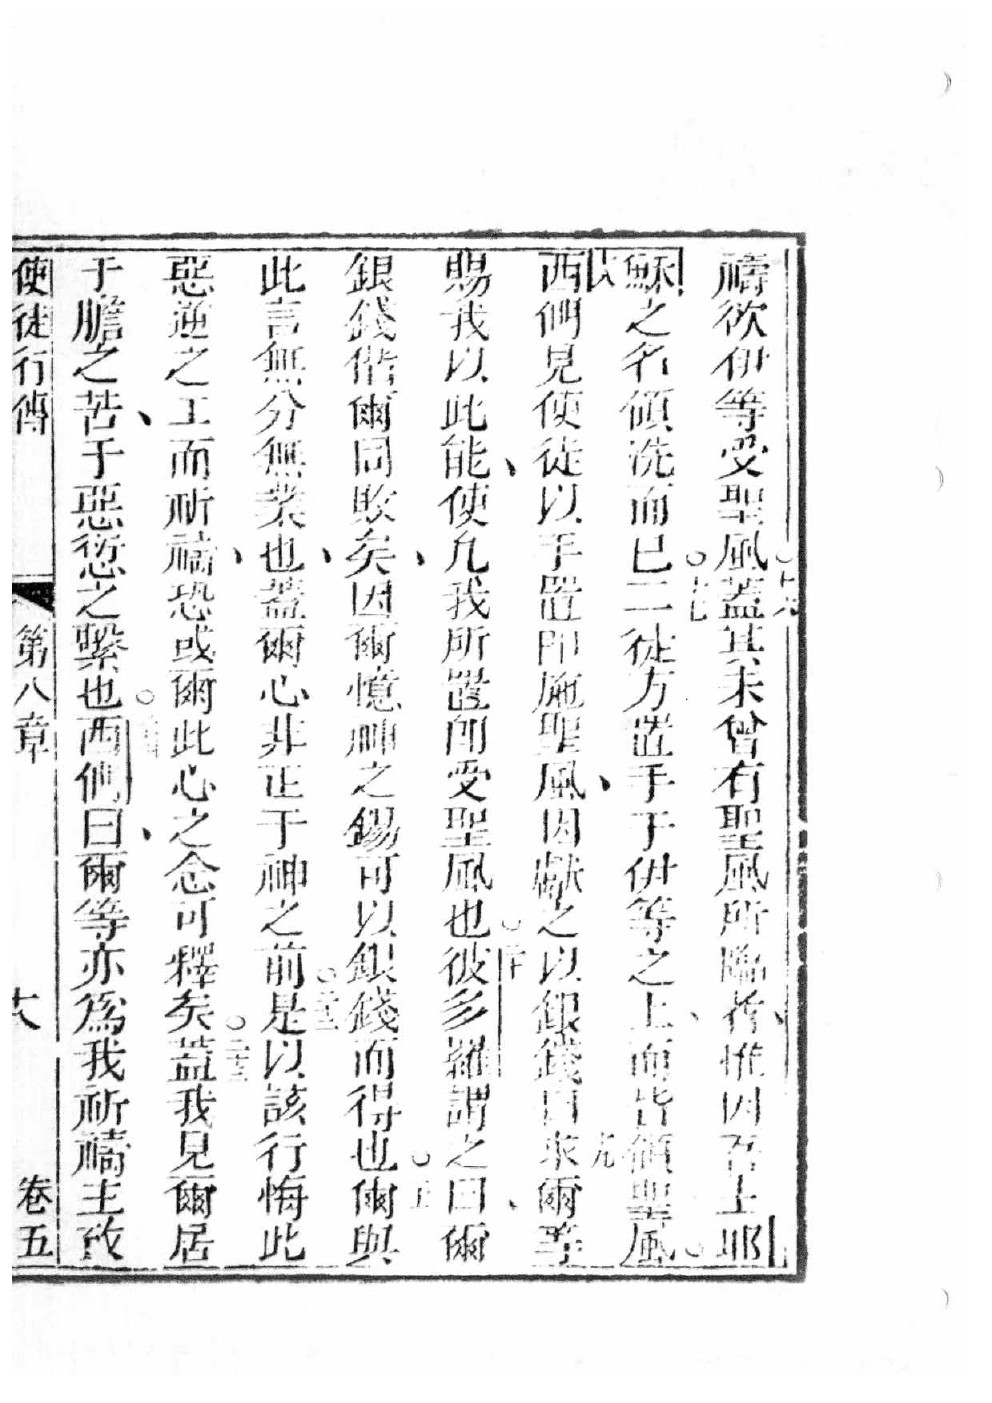 禱欲伊等受聖風蓋其未曾有聖風所臨者惟因吾主耶
穌之名領洗而已二徒方置手于伊等之上而皆領聖風
西們見使徒以手置即施聖風因獻之以銀錢曰求爾等
賜我以此能使凡我所置即受聖風也彼多羅謂之曰爾
銀錢偕爾同敗矣因爾憶神之錫可以銀錢而得也爾與
此言無分無業也蓋爾心非正于神之前是以該行悔此
惡逆之工而祈禱恐或爾此心之念可釋矣蓋我見爾居
于膽之苦于惡愆之繫也西們曰爾等亦為我祈禱主致
使徒行傳 第八章 卷五